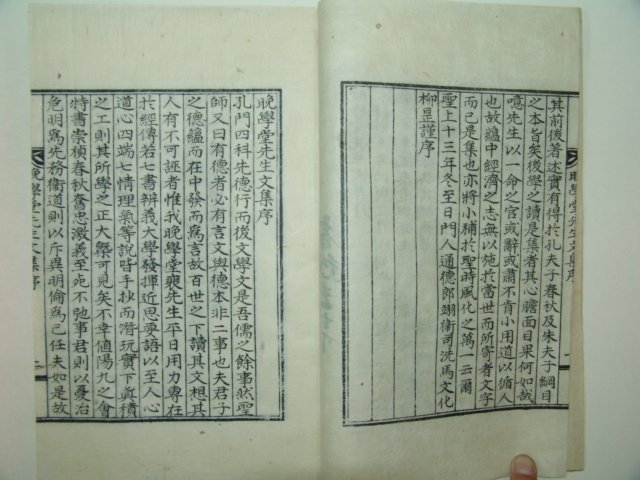 其前後著述實有得於孔夫子春秋及朱夫子綱目
之本旨矣後學之讀是集者其心膽面目果何如哉
噫先生以一命之官或辭或肅不肯小用道以循人
也故蘊中經濟之志無以施於當世而所寄者文字
而已是集也亦將於聖時風化之萬一云爾
聖上十三年冬至日門人通德郎翊衛司洗馬文化
柳㫤謹序
晩學堂先生文集序
一
晩學堂先生文集序
孔門四科先德行而後文學文是吾儒之餘事然聖
師又曰有德者必有言文與德本非二事也夫君子
之德蘊而在中發而爲言故百世之下讀其文想其
人有不可誣者惟我晩學堂裵先生平日用力專在
於經傳若七書辨義大學發揮近思要語以至人心
道心四端七情理氣等說皆手抄而潛玩實下眞積
之工則其所學之正大槩可見矣不幸値陽九之會
特書崇禎春秋奮忠激義至死不弛事君則以憂治
危明爲先務衛道則以斥異明倫爲己任夫如是故
晩學堂先生文集序
二